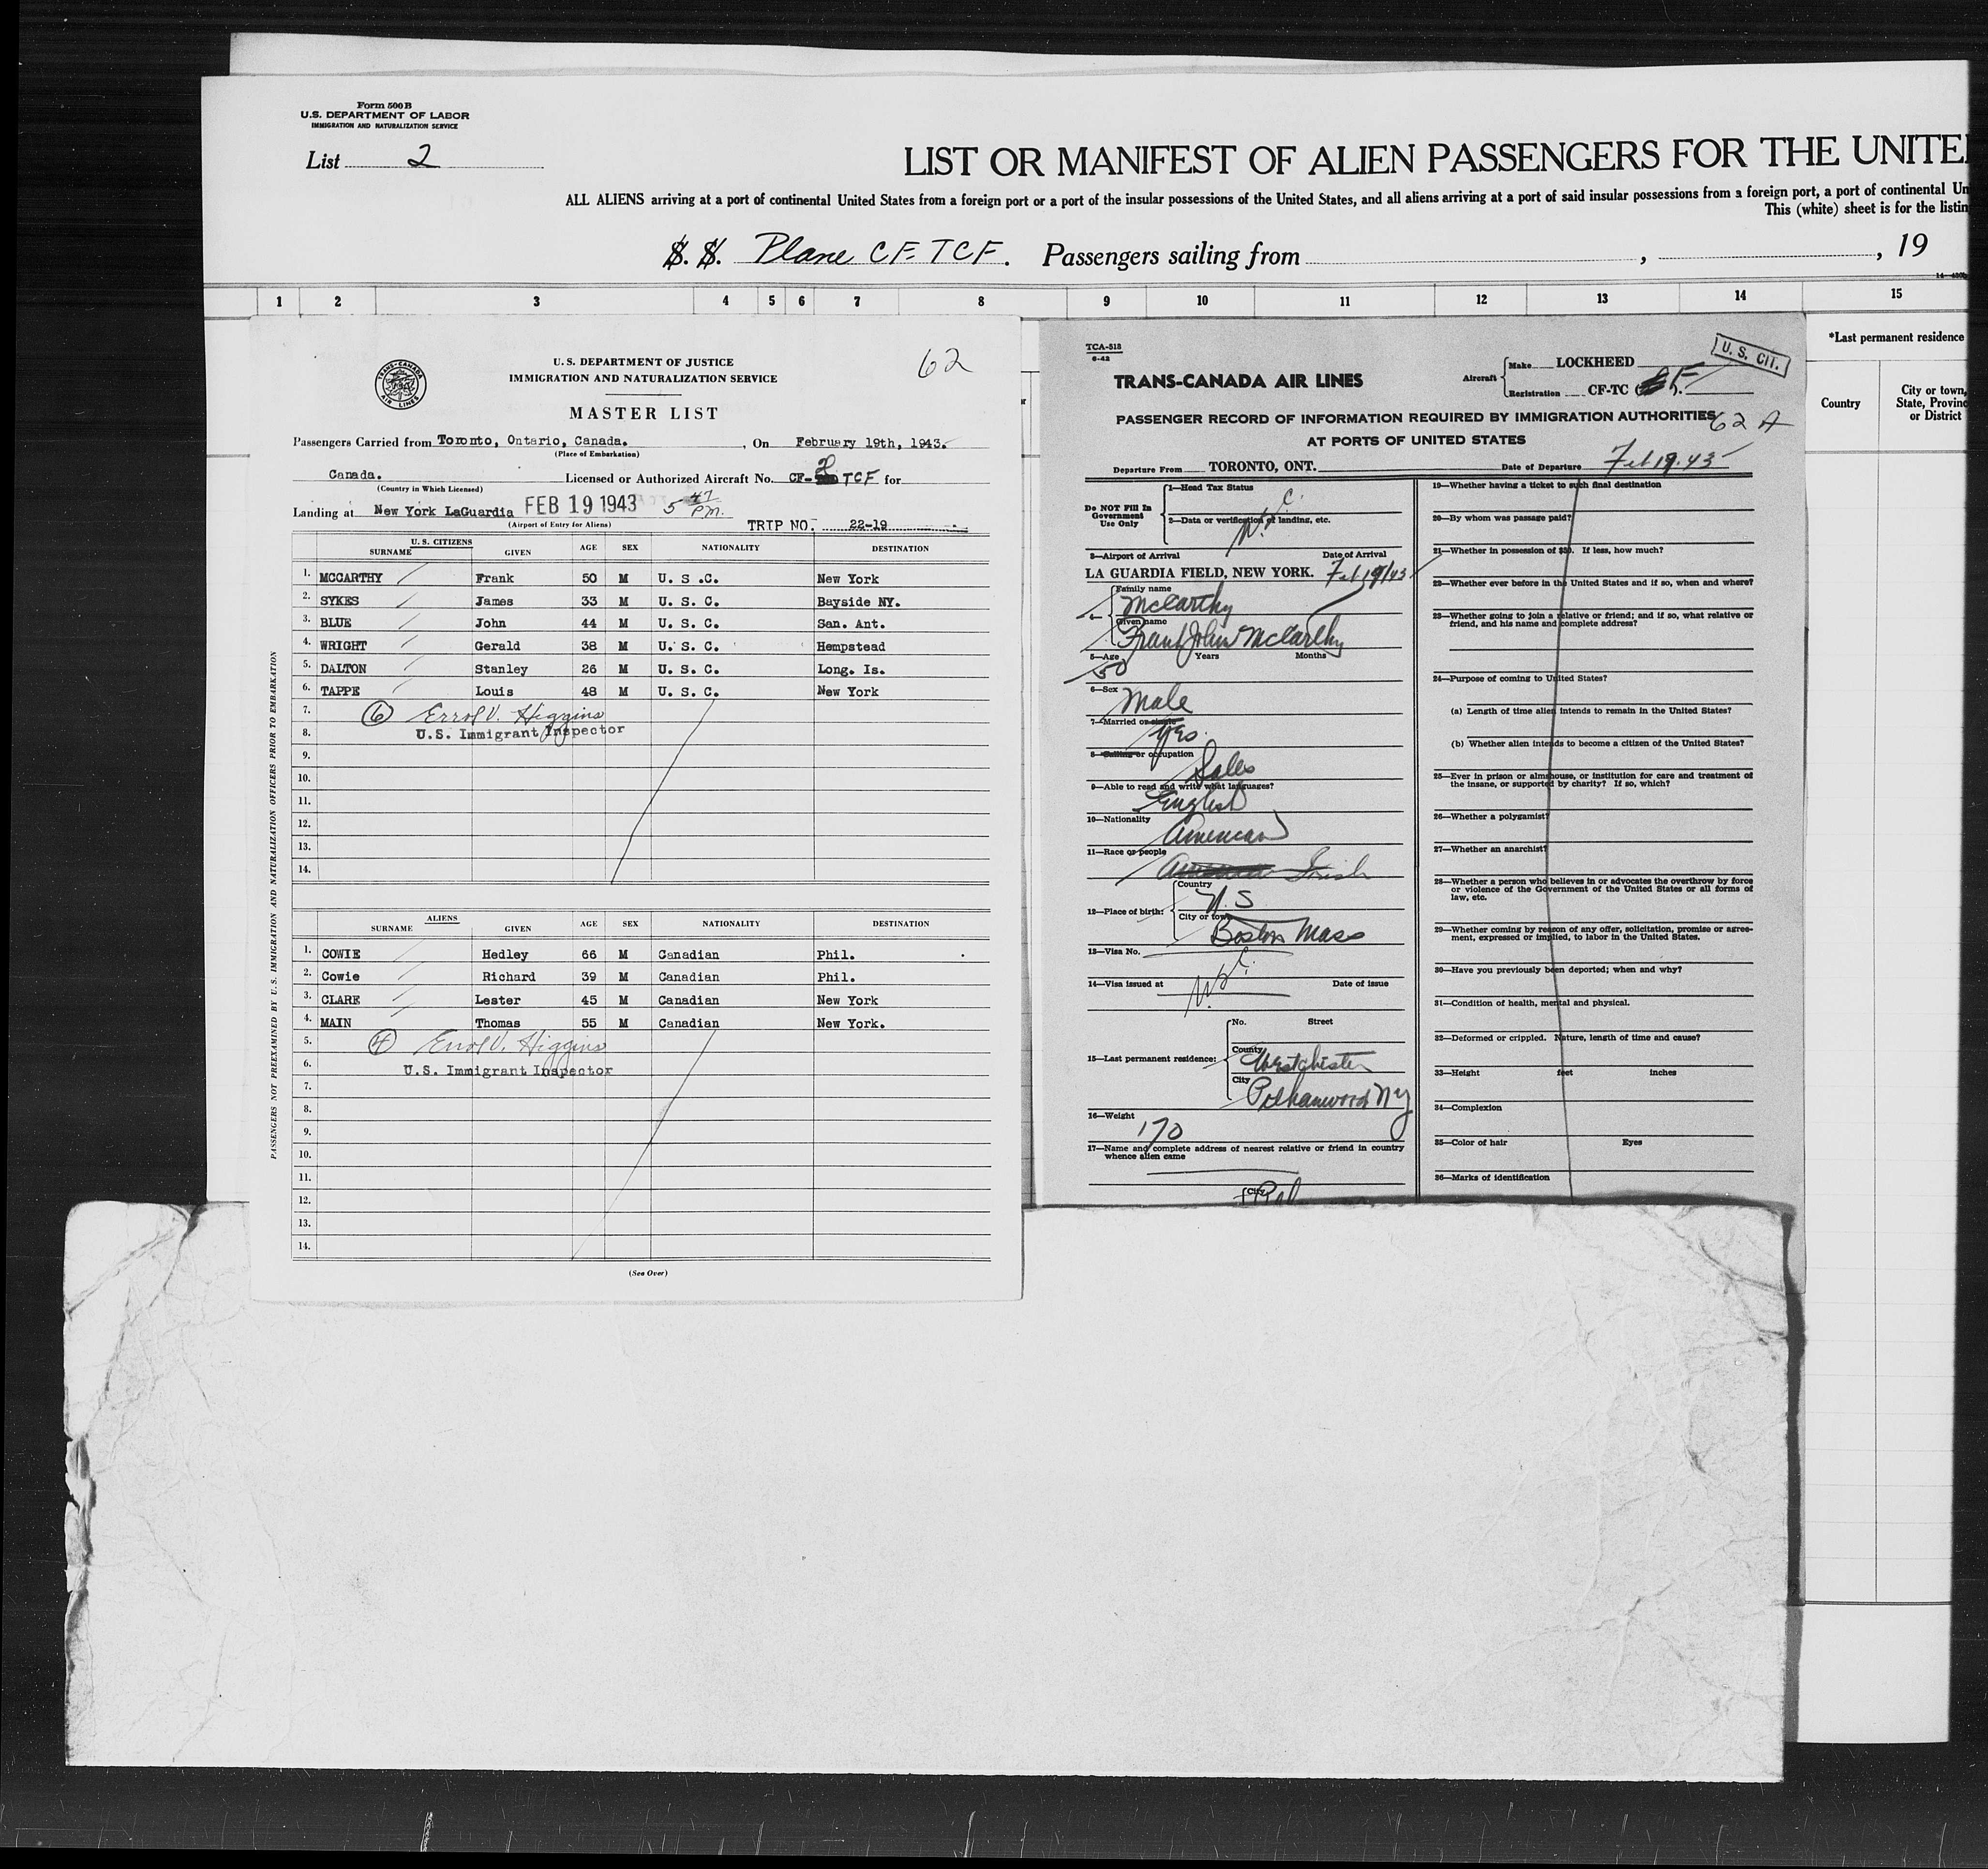 Form 500 B
U.S. DEPARTMENT OF LABOR
IMMIGRATION AND NATURALIZATION SERVICE
List 2
LIST OR MANIFEST OF ALIEN PASSENGERS FOR THE UNITE
ALL ALIENS arriving at a port of continental United States from a foreign port or a port of the insular possessions of the United States, and all aliens arriving at a port of said insular possessions from a foreign port, a port of continental Un
This (white) sheet is for the listin
S. S. Plane CF-TCF. Passengers sailing from , , 19
1 2 3 4 5 6 7 8 9 10 11 12 13 14 15
*Last permanent residence
Country
City or town,
State, Provinc
or District
TRANS-CANADA AIR LINES
62
U. S. DEPARTMENT OF JUSTICE
IMMIGRATION AND NATURALIZATION SERVICE
MASTER LIST
Passengers Carried from Toronto, Ontario, Canada. , On February 19th, 1943.
(Place of Embarkation)
Canada. Licensed or Authorized Aircraft No. CF- TCF for
(Country in Which Licensed)
Landing at New York LaGuardia FEB 19 1943 5 47 P.M.
(Airport of Entry for Aliens)
TRIP NO. 22-19
U. S. CITIZENS
SURNAME GIVEN AGE SEX NATIONALITY DESTINATION
1. MCCARTHY Frank 50 M U. S .C. New York
2. SYKES James 33 M U. S. C. Bayside NY.
3. BLUE John 44 M U. S. C. San. Ant.
4. WRIGHT Gerald 38 M U. S. C. Hempstead
5. DALTON Stanley 26 M U. S. C. Long. Is.
6. TAPPE Louis 48 M U. S. C. New York
7. 6 Errol V. Higgins
8. U.S. Immigrant Inspector
9.
10.
11.
12.
13.
14.
ALIENS
SURNAME GIVEN AGE SEX NATIONALITY DESTINATION
1. COWIE Hedley 66 M Canadian Phil.
2. Cowie Richard 39 M Canadian Phil.
3. CLARE Lester 45 M Canadian New York
4. MAIN Thomas 55 M Canadian New York.
5. 4 Errol V. Higgins
6. U.S. Immigrant Inspector
7.
8.
9.
10.
11.
12.
13.
14.
(See Over)
PASSENGERS NOT PREEXAMINED BY U. S. IMMIGRATION AND NATURALIZATION OFFICERS PRIOR TO EMBARKATION
TCA-518
6-42
TRANS-CANADA AIR LINES
Aircraft Make LOCKHEED
Registration CF-TC F
U. S. CIT.
PASSENGER RECORD OF INFORMATION REQUIRED BY IMMIGRATION AUTHORITIES
62 A
AT PORTS OF UNITED STATES
Departure From TORONTO, ONT. Date of Departure Feb 19. 43
Do NOT Fill In Government Use Only
1—Head Tax Status
2—Data or verification of landing, etc.
3—Airport of Arrival Date of Arrival
LA GUARDIA FIELD, NEW YORK. Feb 19/43
Family name McCarthy
Given name Frank John McCarthy
5—Age 50 Years Months
6—Sex Male
7—Married or single Yes.
8—Calling or occupation Sales
9—Able to read and write what languages?
English
10—Nationality American
11—Race or people Irish
12—Place of birth: Country U. S
City or town Boston Mass
13—Visa No.
14—Visa issued at Date of issue
15—Last permanent residence: No. Street
County Westchester
City Pelhamwood NY
16—Weight 170
17—Name and complete address of nearest relative or friend in country
whence alien came
City
19—Whether having a ticket to such final destination
20—By whom was passage paid?
21—Whether in possession of $50. If less, how much?
22—Whether ever before in the United States and if so, when and where?
23—Whether going to join a relative or friend; and if so, what relative or
friend, and his name and complete address?
24—Purpose of coming to United States?
(a) Length of time alien intends to remain in the United States?
(b) Whether alien intends to become a citizen of the United States?
25—Ever in prison or almshouse, or institution for care and treatment of
the insane, or supported by charity? If so, which?
26—Whether a polygamist?
27—Whether an anarchist?
28—Whether a person who believes in or advocates the overthrow by force
or violence of the Government of the United States or all forms of
law, etc.
29—Whether coming by reason of any offer, solicitation, promise or agree-
ment, expressed or implied, to labor in the United States.
30—Have you previously been deported; when and why?
31—Condition of health, mental and physical.
32—Deformed or crippled. Nature, length of time and cause?
33—Height feet inches
34—Complexion
35—Color of hair Eyes
36—Marks of identification